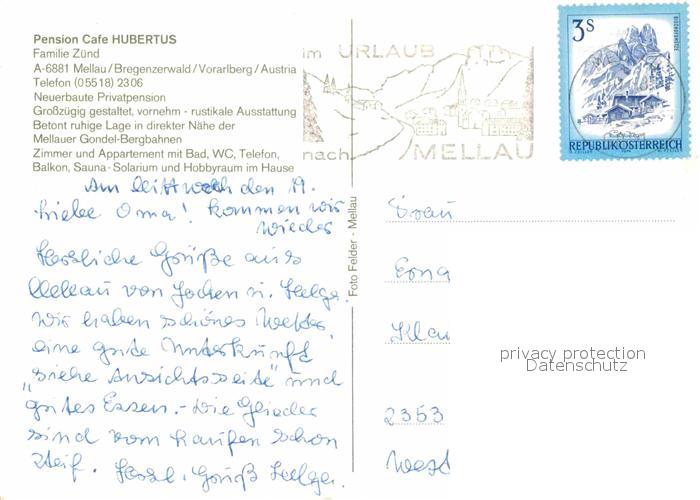 Pension Cafe HUBERTUS
Familie Zünd
A-6881 Mellau/Bregenzerwald/Vorarlberg/Austria
Telefon (05518) 2306
Neuerbaute Privatpension
Großzügig gestaltet, vornehm - rustikale Ausstattung
Betont ruhige Lage in direkter Nähe der
Mellauer Gondel-Bergbahnen
Zimmer und Appartement mit Bad, WC, Telefon,
Balkon, Sauna-Solarium und Hobbyraum im Hause
im URLAUB
nach MELLAU
3S
REPUBLIK ÖSTERREICH
Am Mittwoch den 19.
kommen wir
wieder
Liebe Oma!
Herzliche Grüße aus
Mellau von Jochen u. Helga.
Wir haben schönes Wetter,
eine gute Unterkunft
"siehe Ansichtsseite" und
gutes Essen.- Die Glieder
sind vom Laufen schon
steif. Herzl. Gruß Helga.
Foto Felder - Mellau
Frau
Erna
2353
privacy protection
Datenschutz